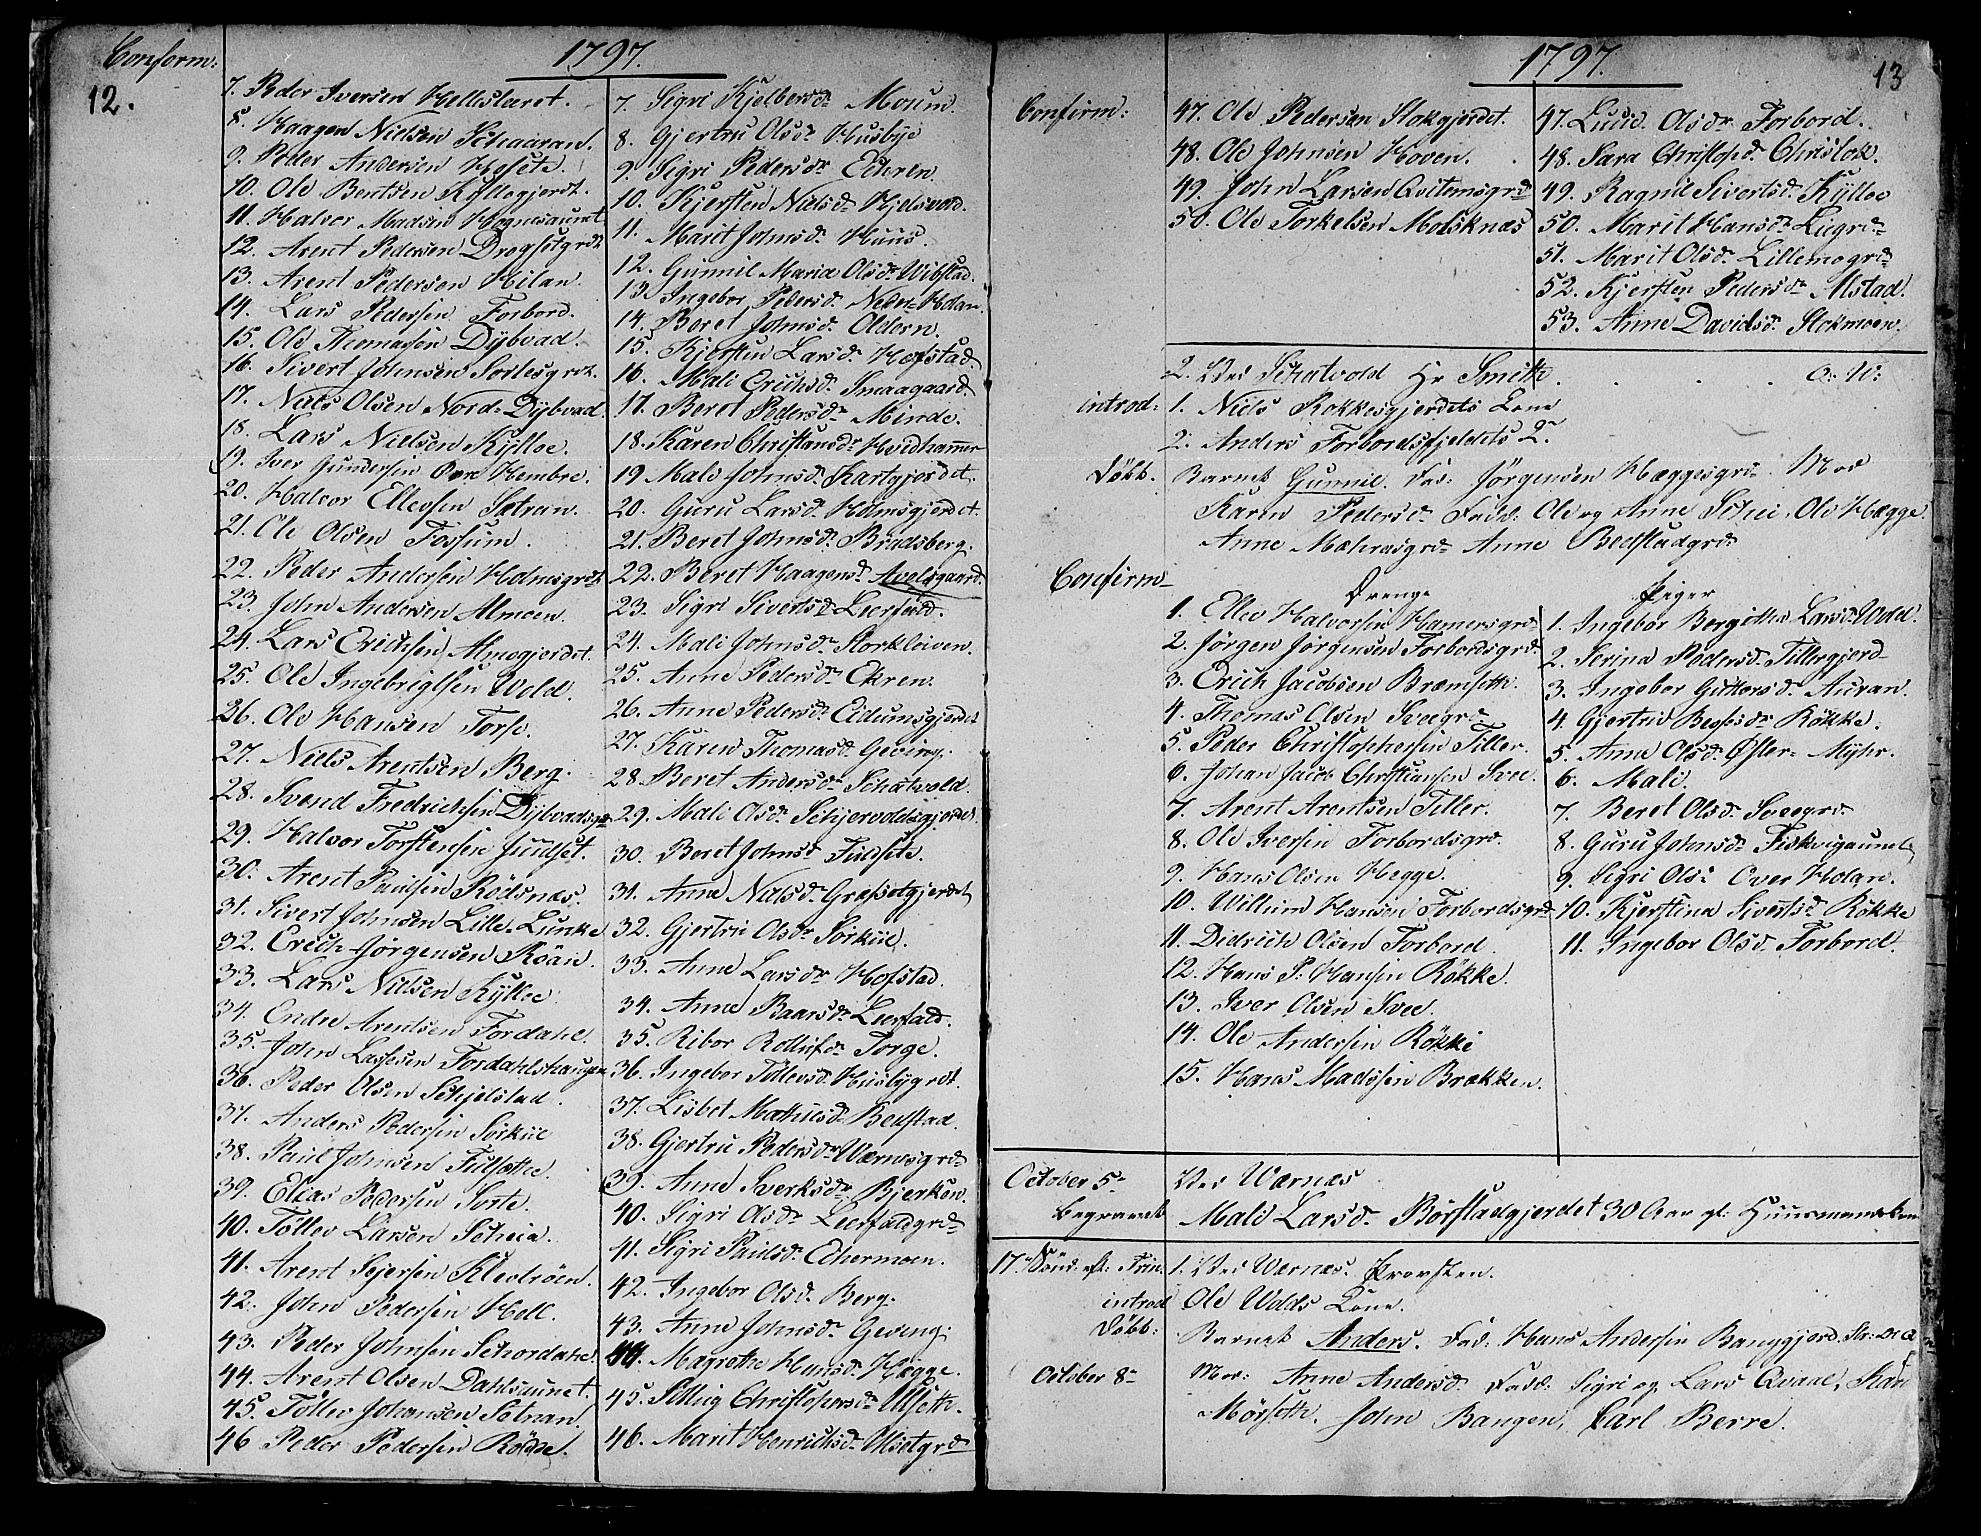 Conform:
12.
1797.
7. Peder Iversen Hellslæret.
8. Haagen Nielsen Schaaran.
9. Peder Andersen Hofset.
10. Ole Bentsen Kyllogjerdt.
11. Halvor Madsen Hognesaunet
12. Arent Pedersen Drogsetgrdt
13. Arent Pedersen Hilan.
14. Lars Pedersen Forbord.
15. Ole Thomasen Dybvad.
16. Sivert Johnsen Sorlesgrdt.
17. Niels Olsen Nord-Dybvad
18. Lars Nielsen Kylloe.
19. Iver Gundersen Øvre Hembre.
20. Halvor Ellevsen Sætran.
21. Ole Olsen Fossum.
22. Peder Andersen Holmsgrdt
23. John Andersen Almoen.
24. Lars Erichsen Almogjerdet.
25. Ole Ingebrigtsen Wold.
26. Ole Hansen Torse.
27. Niels Arentsen Berg.
28. Svend Fredrichsen Dybvadsgr
29. Halvor Torstensen Juulset.
30. Arent Paulsen Rödsnæs.
31. Sivert Johnsen Lille-Lunke
32. Erich Jörgensen Röan.
33. Lars Nielsen Kylloe
34. Endre Arentsen Fordahl.
35. John Lassesen Fordahlshaugen
36. Peder Olsen Schjelstad.
37. Anders Pedersen Sörkiil
38. Paul Johnsen Fulsæthe.
39. Elias Pedersen Sorte.
40. Töllev Larsen Scheia.
41. Arent Sejersen Kledröen.
42. John Pedersen Hell.
43. Peder Johnsen Schordahl.
44. Arent Olsen Dahlsaunet.
45. Töllev Johansen Setnan.
46 Peder Pedersen Rökke.
7. Sigri Kjelbersdr Moum.
8. Gjertru Olsdr Husbye
9. Sigri Pedersdr Echren.
10. Kjersten Nielsdr Hjelsvord.
11. Marit Johnsdr Huus.
12. Gunnil Maria Olsdr Wibstad.
13. Ingebor Pedersdr Neder-Holan.
14. Beret Johnsdr Oldern.
15. Kjersten Larsdr Hofstad.
16. Mali Erichsdr Smaagaard.
17. Beret Pedersdr Minde.
18. Karen Christiansdr Hvidhammer
19 Mali Johnsdr Kartgjerdet.
20. Guru Larsdr Holmsgjerdet.
21. Beret Johnsdr Brudsberg.
22. Beret Haagensdr Avelsgaard.
23. Sigri Sivertsdr Leerfald.
24. Mali Johnsdr Storkleiven.
25. Anne Pedersdr Ekren.
26. Anne Pedersdr Eidumsgjerdet
27. Karen Thomasdr Geving.
28. Beret Andersdr Schatvold.
29. Mali Olsdr Schjervoldsgjerdet.
30. Beret Johnsd Fulsete.
31. Anne Nielsdr Græssetgjerdet
32. Gjertru Olsdr Sörkiil.
33. Anne Larsdr Hofstad.
34. Anne Baarsdr Leerfald.
35. Ribor Rollufsdr Torge.
36. Ingebor Töllevsdr Husbygrdt.
37. Lisbet Mathiasdr Bedstad.
38. Gjertru Pedersdr Wærnesgrdt
39. Anne Sverksdr Bjerken.
40. Sigri Olsdr Leerfaldgrdt
41. Sigri Paulsdr Echermoen.
42. Ingebor Olsdr Berg.
43. Anne Johnsdr Geving.
44. Magrethe Hansdr Hegge.
45. Sillug Christophersdr Ulseth.
46. Marit Henrichsdr Ulsetgrdt
13
1797.
Confirm:
47. Ole Pedersen Stokgjerdet.
48. Ole Johnsen Hoven.
49. John Larsen Qvitemsgrdt
50. Ole Torkelsen Molsknæs
47. Lusie Olsdr Forbord.
48. Sara Christopdr Chrislok.
49. Ragnil Sivertsdr Kylloe
50. Marit Hansdr Liegrdt
51. Marit Olsdr Lillemogrdt
52. Kjersten Pedersdr Alstad.
53. Anne Davidsdr Stokmoen
2. Ved Schatvold Hr Smith. . . . O: W:
introd: 1. Niels Rokkesgjerdets Kone
2. Anders Forbordsfjeldets K.
Döbt. Barnet Gunnil. Fad: Jörgensen Hæggesgrdt. Mod
Karen Pedersdr Fadd: Ole og Anne Schei, Ole Hægge
Anne Mæhresgrdt Anne Bedstadgrdt
Confirm
Drenge
1. Ellev Halvorsen Hamersgrdt
2. Jörgen Jörgensen Forbordsgrdt
3. Erich Jacobsen Bremseth.
4. Thomas Olsen Sveegrdt
5. Peder Christophersen Tiller.
6. Johan Jacob Christiansen Svee.
7. Arent Arentsen Tiller.
8. Ole Iversen Forbordsgrdt.
9. Hans Olsen Hegge.
10. Willum Hansen Forbordsgrdt
11. Didrich Olsen Forbord.
12. Hans P: Hansen Rökke.
13. Iver Olsen Svee.
14. Ole Andersen Rökke
15. Hans Madssen Brækken.
Piger
1. Ingebor Bergithe Larsdr Wold.
2. Serina Pedersdr Tillergjerd
3. Ingebor Guttorsdr Auran.
4. Gjertrud Bessesdr Rökke.
5. Anne Olsdr Øster-Myhr.
6. Mali.
7. Beret Olsdr Sveegrdt
8. Guru Johnsdr Fiskvigaunet
9. Sigri Olsdr Over Holan.
10. Kjerstina Sivertsdr Rökke
11. Ingebor Olsdr Forbord.
October 5te Ved Wærnæs
begravet Mali Larsdr Börstadgjerdet 30 Aar gl: Huusmandskone
17. Sönd: eft: Trin. 1. Ved Wærnæs. Provsten.
introd Ole Wolds Kone.
Döbt: Barnet Anders. Fad: Hans Andersen Banggjerd. Str: Dra
October 8de Mor: Anne Andersdr Fadd: Sigri og Lars Qvaal,
Mörseth. John Bangen, Carl Berre.